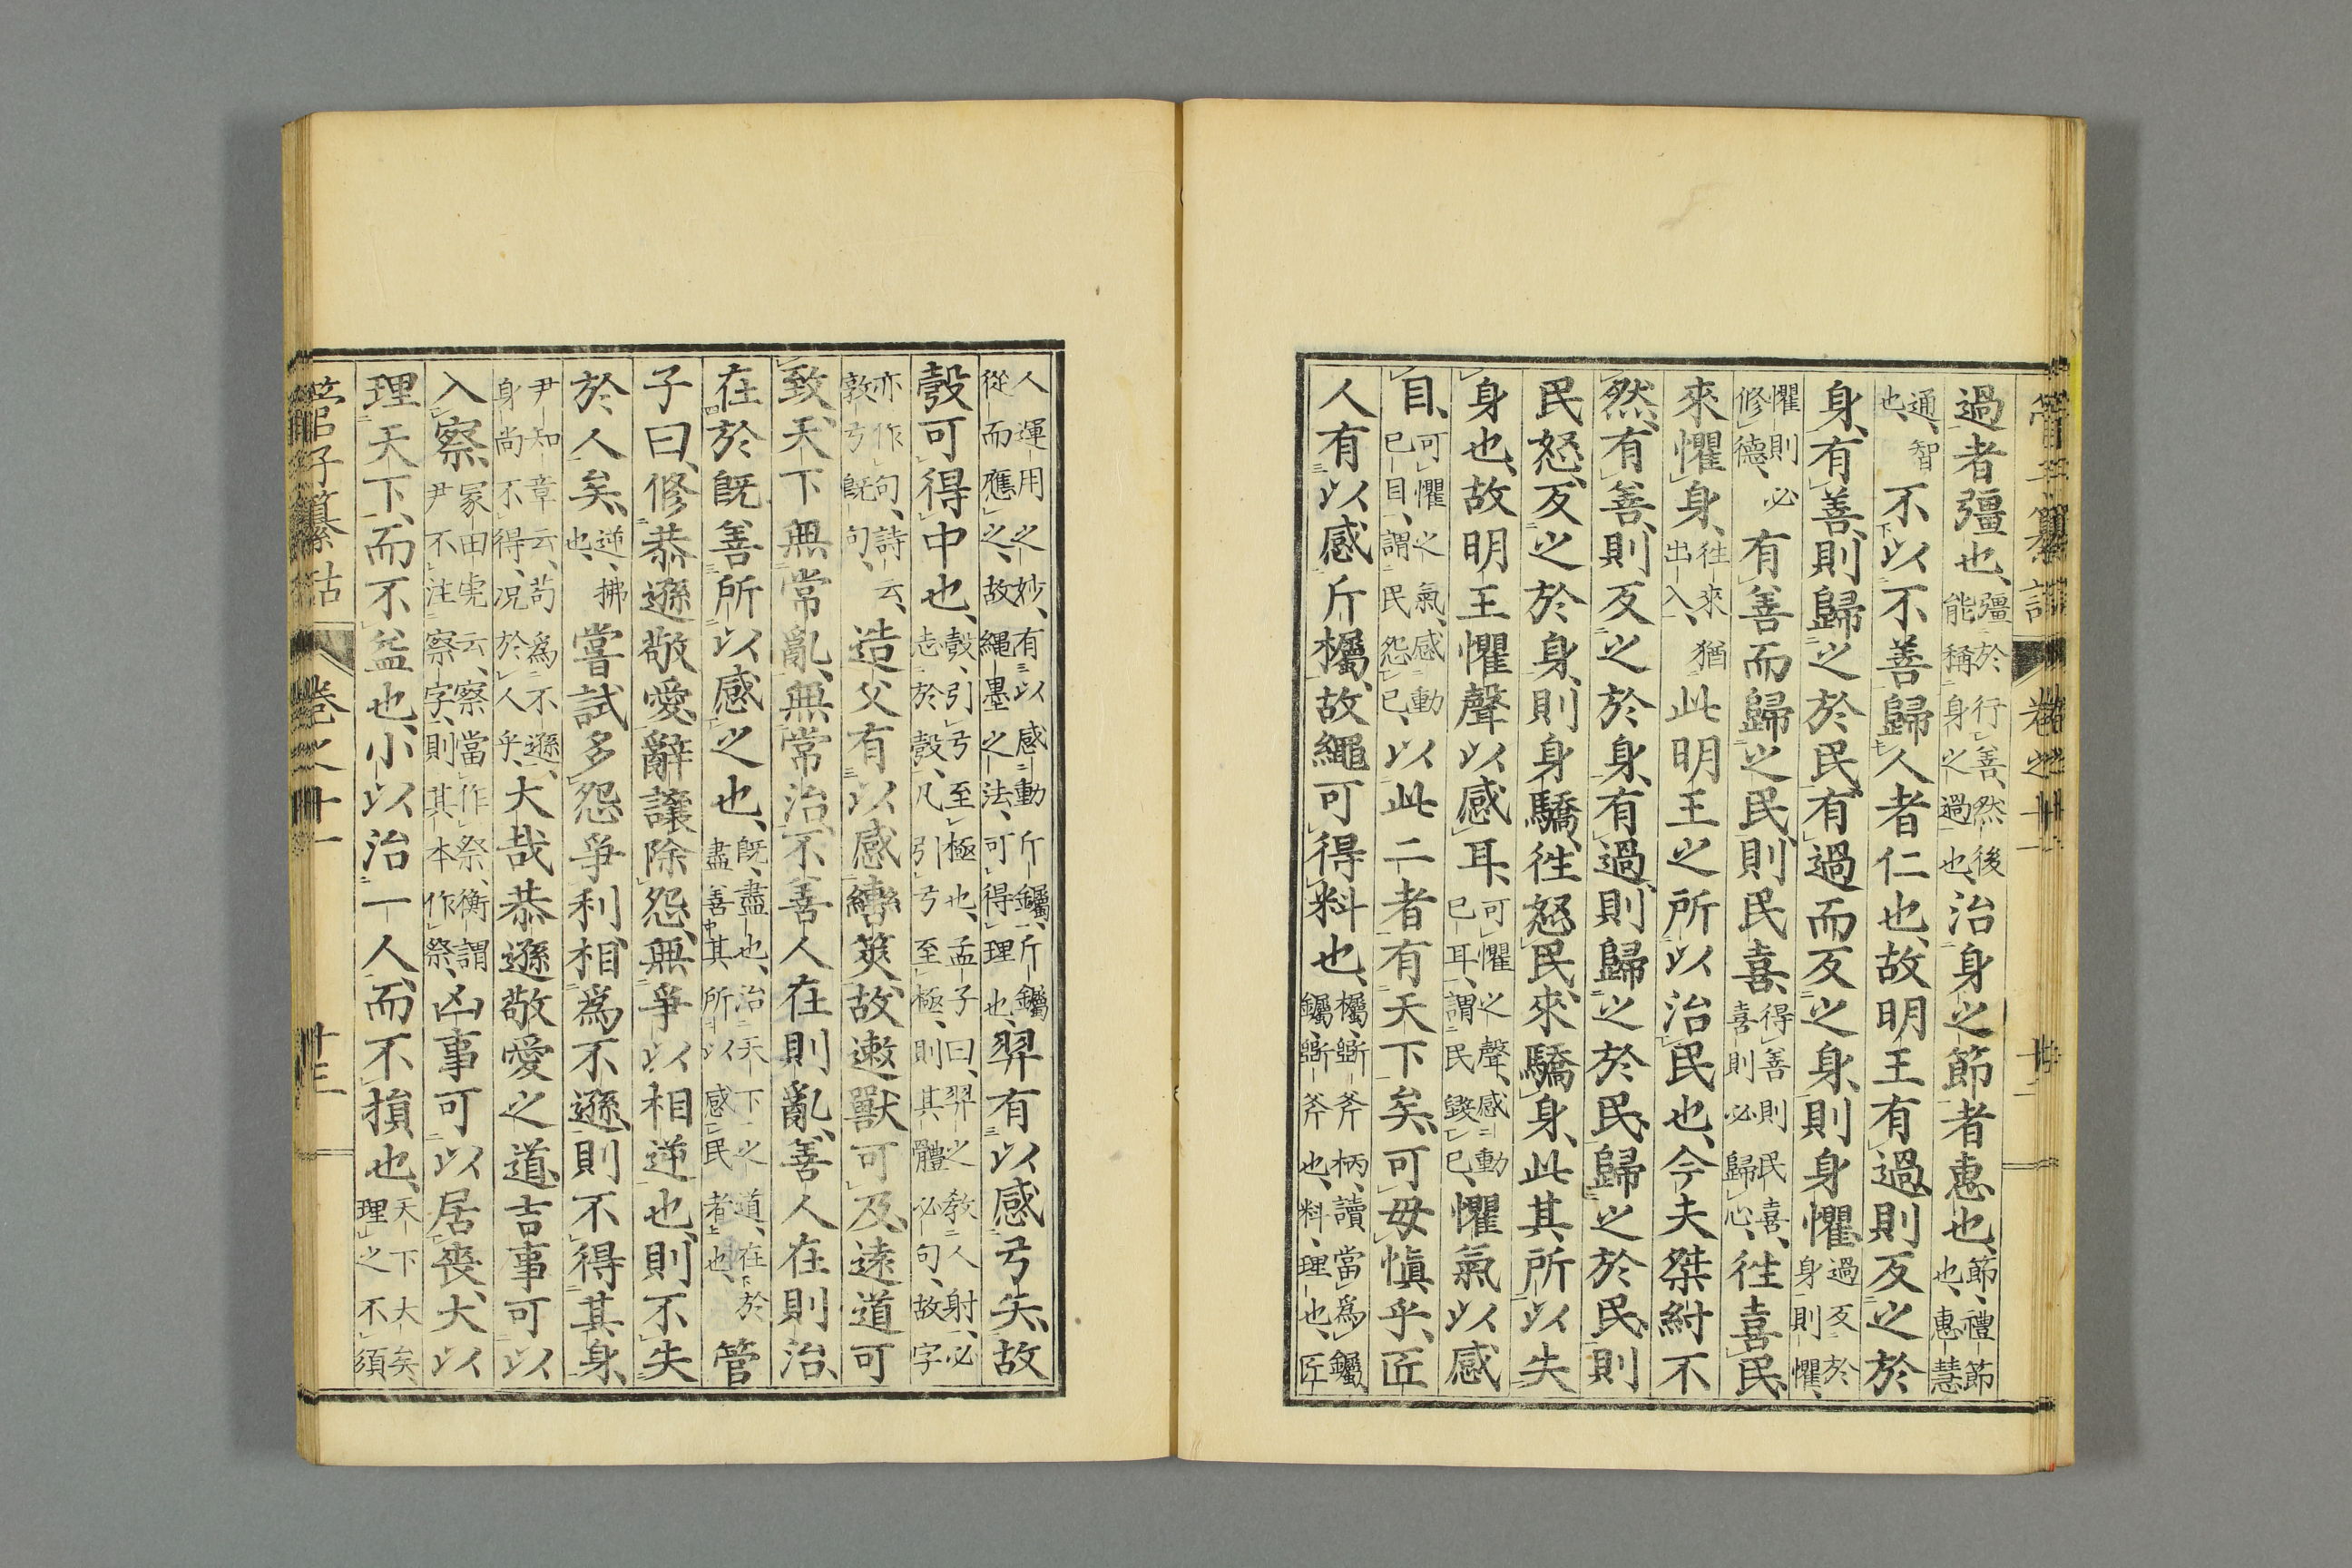 管子纂詁 卷之十一 十二
過者彊也、彊於行善、然後能稱身之過也、治身之節者惠也、節、禮節也、惠、慧
通、智也、不以不善歸人者仁也、故明王有過則反之於
身、有善則歸之於民、有過而反之身、則身懼、過反於身則懼、
懼則必修德、有善而歸之民、則民喜、得善則民喜、喜則必歸心、往喜民、
來懼身、往來猶出入、此明王之所以治民也、今夫桀紂不
然、有善則反之於身、有過則歸之於民、歸之於民則
民怒、反之於身、則身驕、往怒民、來驕身、此其所以失
身也、故明王懼聲以感耳、可懼之聲、感動已耳、謂民毀已、懼氣以感
目、可懼之氣、感動已目、謂民怨已、以此二者有天下矣、可毋愼乎、匠
人有以感斤欘、故繩可得料也、欘、斲斧柄、讀當爲钃、钃、斲斧也、料、理也、匠
人運用之妙、有以感動斤钃、斤钃從而應之、故繩墨之法、可得理也、羿有以感弓矢、故
彀可得中也、彀、引弓至極也、孟子曰、羿之敎人射、必志於彀、凡引弓至極、則其體必句、故字
亦作句、詩云、敦弓旣句、造父有以感轡筴、故遬獸可及、遠道可
致、天下無常亂、無常治、不善人在則亂、善人在則治、
在於旣善所以感之也、旣、盡也、治天下之道、在於盡善其所以感民者也、管
子曰、修恭遜敬愛、辭讓除怨、無爭以相逆也、則不失
於人矣、逆、拂也、嘗試多怨爭利、相爲不遜、則不得其身、
尹知章云、苟爲不遜、身尚不得、况於人乎、大哉恭遜敬愛之道、吉事可以
入察、冢田虎云、察當作祭、衡謂尹不注察字、則其本作祭、凶事可以居喪、大以
理天下、而不益也、小以治一人、而不損也、天下大矣、理之不須
管子纂詁 卷之十一 十三